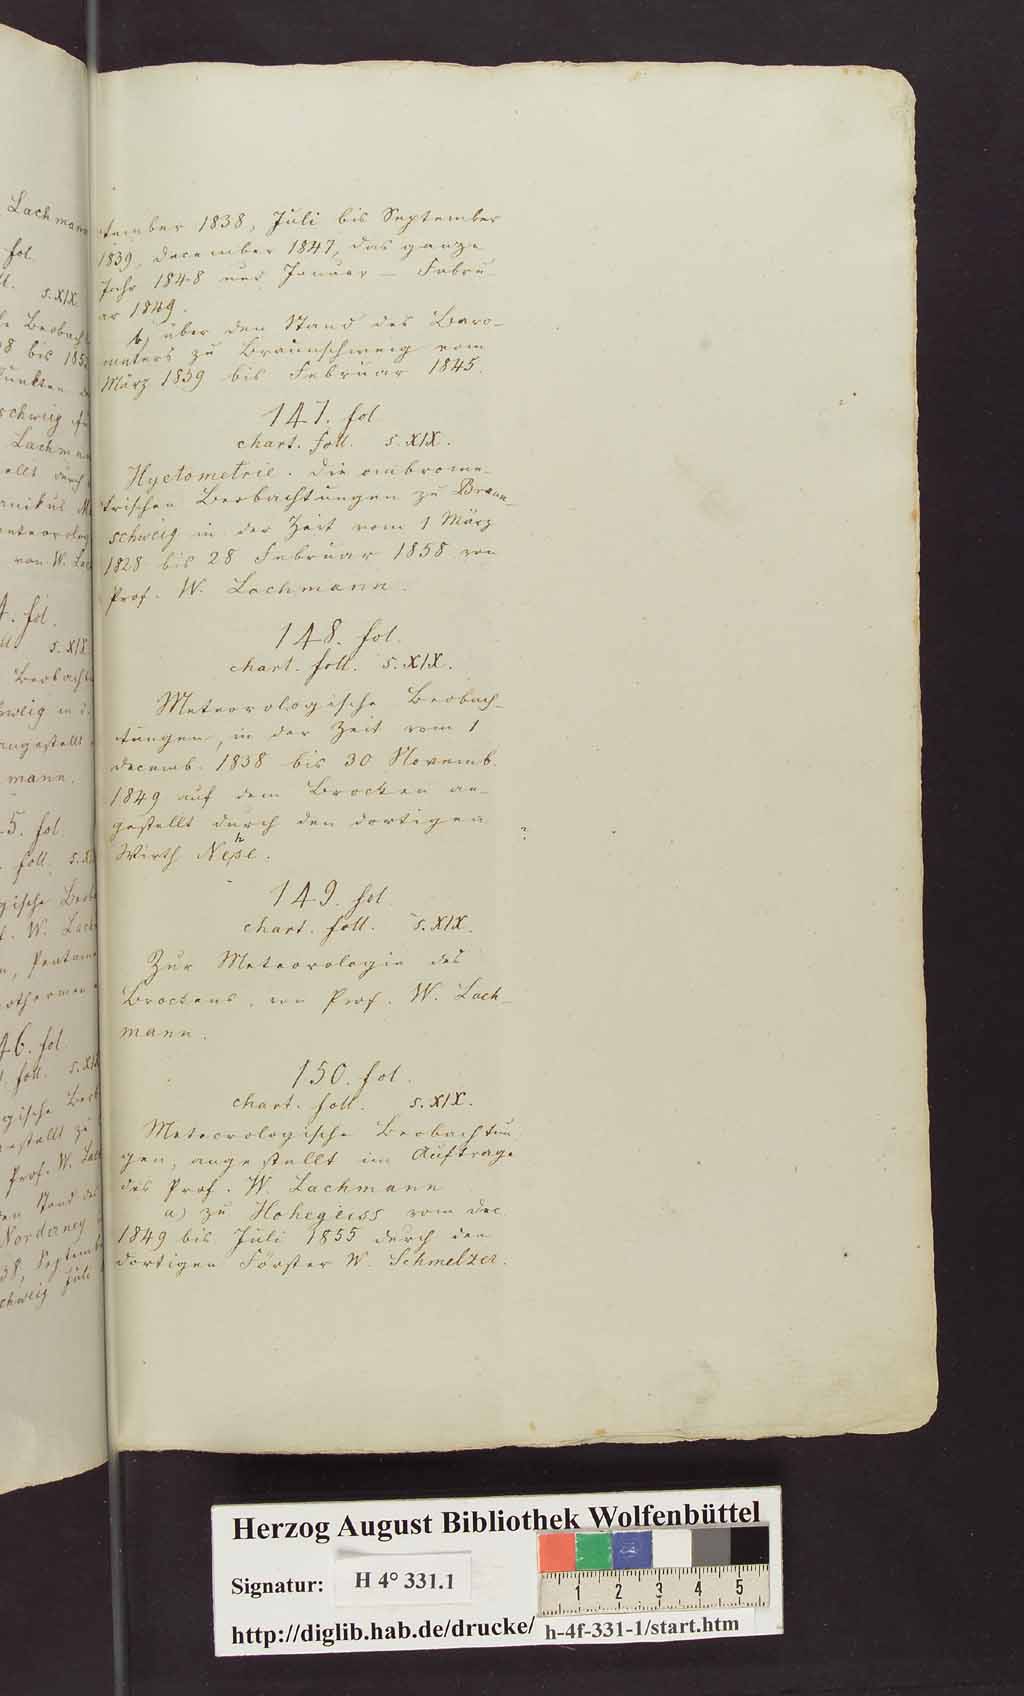 Lachmann
fol.
s. XIX
Beobach
bis 185
Punkten
schweig
Lachman
ellt durch
anikus
meteorolog
von W. Lac
4. fol.
s. XIX
Beobach
hweig in
angestellt
mann.
5. fol.
foll. s. XI
gische Beob
. W. Lach
46. fol
foll. s. XIX
gische Beob
gestellt zu
Prof. W. Lach
den Stand des
Norderney
38, Septemb
chweig Juli
tember 1838, Juli bis September
1839, december 1847, das ganze
Jahr 1848 und Januar – Febru-
ar 1849.
b, über den Stand des Baro-
meters zu Braunschweig vom
März 1839 bis Februar 1845.
147. fol
chart. foll. s. XIX.
Hyetometrie. Die ombrome-
trischen Beobachtungen zu Braun-
schweig in der Zeit vom 1 März
1828 bis 28 Februar 1858 von
Prof. W. Lachmann.
148. fol.
chart. foll. s. XIX.
Meteorologische Beobach-
tungen, in der Zeit vom 1
decemb. 1838 bis 30 Novemb.
1849 auf dem Brocken an-
gestellt durch den dortigen
Wirth
149. fol
chart. foll. s. XIX.
Zur Meteorologie des
Brockens, von Prof. W. Lach-
mann.
150. fol.
chart. foll. s. XIX.
Meteorologische Beobachtun
gen, angestellt im Auftrage
des Prof. W. Lachmann
a) zu Hohegeiss vom dec
1849 bis Juli 1855 durch den
dortigen Förster W. Schmelzer.
Herzog August Bibliothek Wolfenbüttel
Signatur: H 4° 331.1
1 2 3 4 5
http://diglib.hab.de/drucke/ h-4f-331-1/start.htm